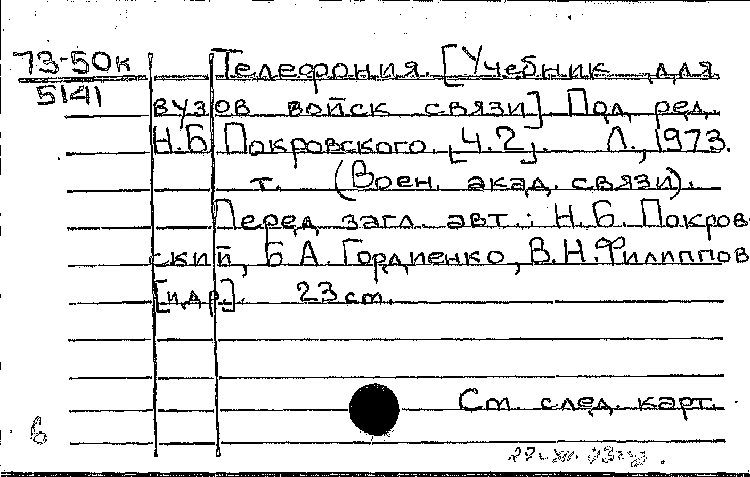 73-50к
5141
Телефония. [Учебник для
вузов войск связи] Под ред.
Н.Б. Покровского. [Ч.2]. Л., 1973.
т. (Воен. акад. связи).
Перед загл. авт.: Н.Б. Покров-
ский, Б.А. Гордиенко, В.Н. Филиппов
[и др.]. 23 см.
См. след. карт.
в